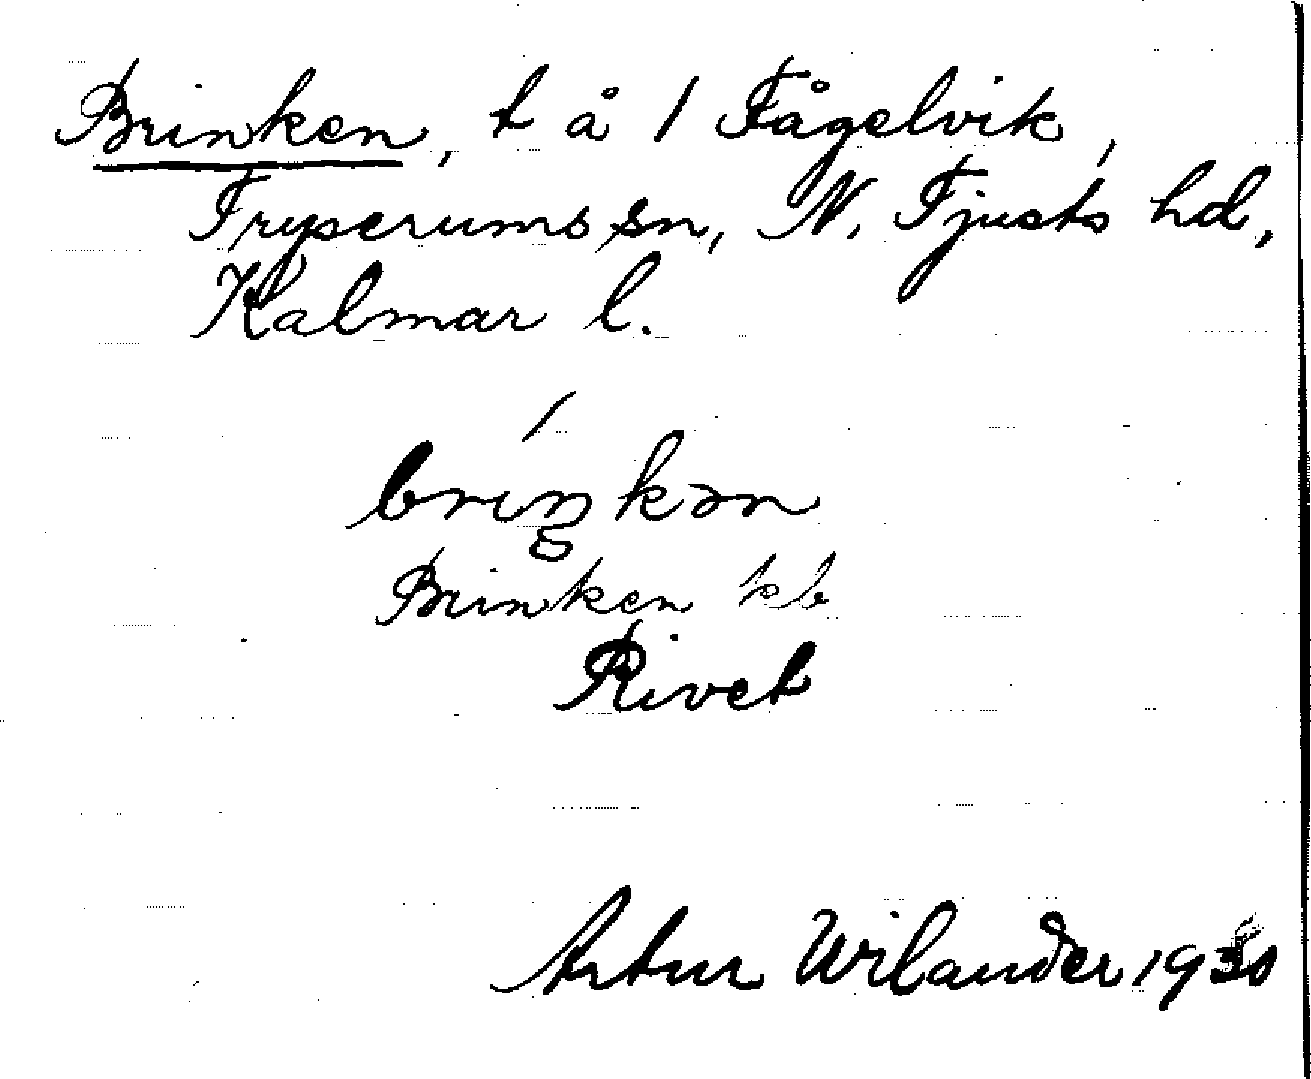 Brinken, t å 1 Fågelvik,
Tryserums sn, N. Tjusts hd,
Kalmar l.
briŋkən
Brinken kb
Rivet
Artur Wilander 1930